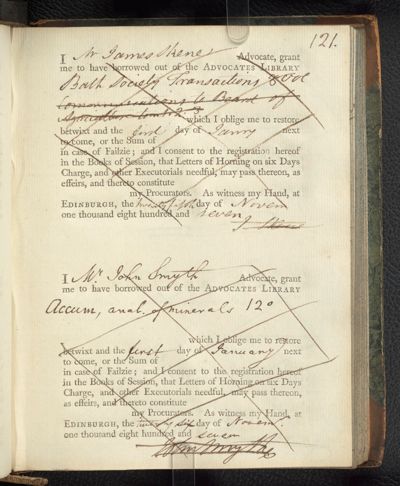 121.
I Mr James Skene Advocate, grant
me to have borrowed out of the ADVOCATES LIBRARY
Bath Society Transactions 8 Vol
Communications to Board of
Agriculture
which I oblige me to restore
betwixt and the first day of Janry next
to come, or the Sum of
in case of Failzie; and I consent to the registration hereof
in the Books of Session, that Letters of Horning on six Days
Charge, and other Executorials needful, may pass thereon, as
effeirs, and thereto constitute
my Procurators. As witness my Hand, at
EDINBURGH, the twenty fifth day of Novem
one thousand eight hundred and seven
J Skene
I Mr. John Smyth Advocate, grant
me to have borrowed out of the ADVOCATES LIBRARY
Accum, anal. of minerals 12o
which I oblige me to restore
betwixt and the first day of January next
to come, or the Sum of
in case of Failzie; and I consent to the registration hereof
in the Books of Session, that Letters of Horning on six Days
Charge, and other Executorials needful, may pass thereon,
as effeirs, and thereto constitute
my Procurators. As witness my Hand, at
EDINBURGH, the twenty six day of Novem.
one thousand eight hundred and seven
John Smyth